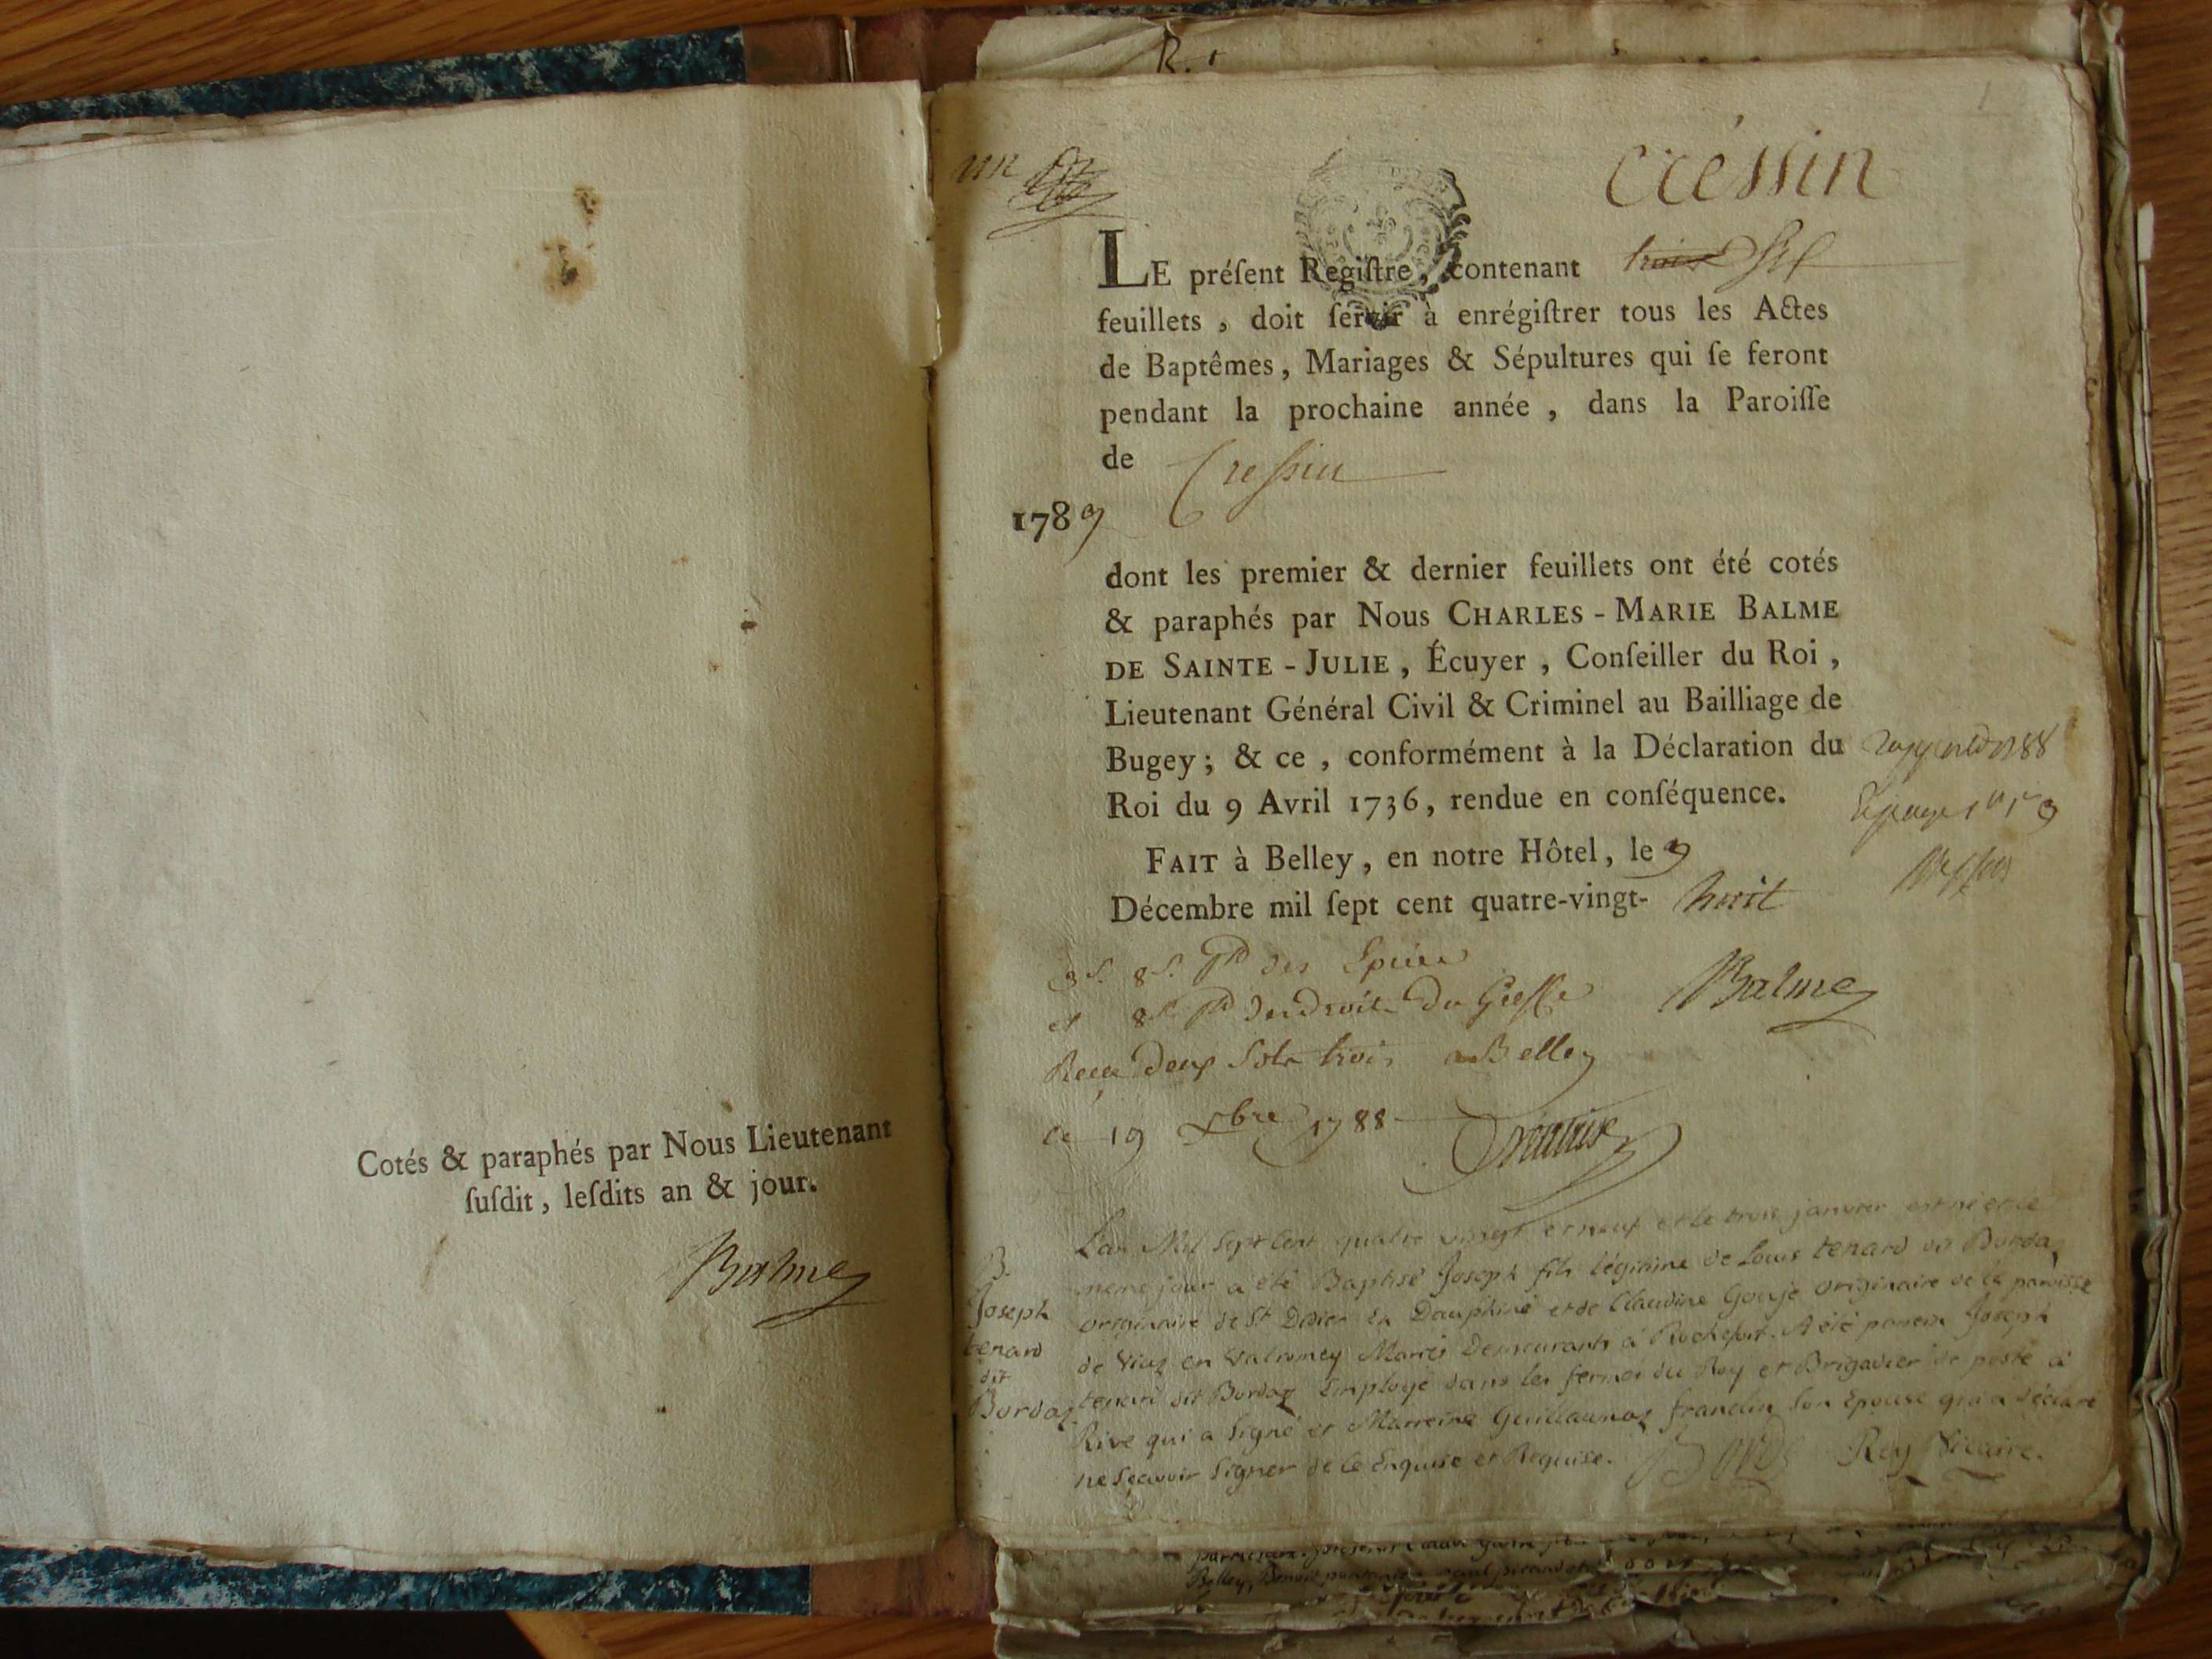 Cotés & paraphés par Nous Lieutenant
ſuſdit, leſdits an & jour.
Balme
1
un
créssin
LE préſent Regiſtre, contenant trois six
feuillets, doit ſervir à enrégiſtrer tous les Actes
de Baptêmes, Mariages & Sépultures qui ſe feront
pendant la prochaine année, dans la Paroiſſe
de Cressin
1789
dont les premier & dernier feuillets ont été cotés
& paraphés par Nous CHARLES-MARIE BALME
DE SAINTE-JULIE, Écuyer, Conſeiller du Roi,
Lieutenant Général Civil & Criminel au Bailliage de
Bugey; & ce, conformément à la Déclaration du
Roi du 9 Avril 1736, rendue en conſéquence.
FAIT à Belley, en notre Hôtel, le 9
Décembre mil ſept cent quatre-vingt-huit
3s. 8d. pd des Epices
et 8d pd des Droits du Greffe
Balme
Recu Deux Sols trois a Belley
ce 19 xbre 1788
L'an Mil Sept Cent quatre vingt et neuf et le trois janvier est né et le
meme jour a été Baptisé Joseph fils légitime de Louis tenard dit Bordaz
originaire de St Didier en Dauphiné et de Claudine Gouje originaire de la paroisse
de Vieuz en Valromey Mariés Demeurants à Rochefort. A été parrein Joseph
tenard dit Bordaz Employé dans les fermes du Roy et Brigadier de poste à
Rive qui a Signé et Marreine Guillaumaz francelin Son Epouse qui a déclaré
ne Sçavoir Signer de ce Enquise et Requise. Rey Vicaire.
B.
Joseph
tenard
dit
Bordaz